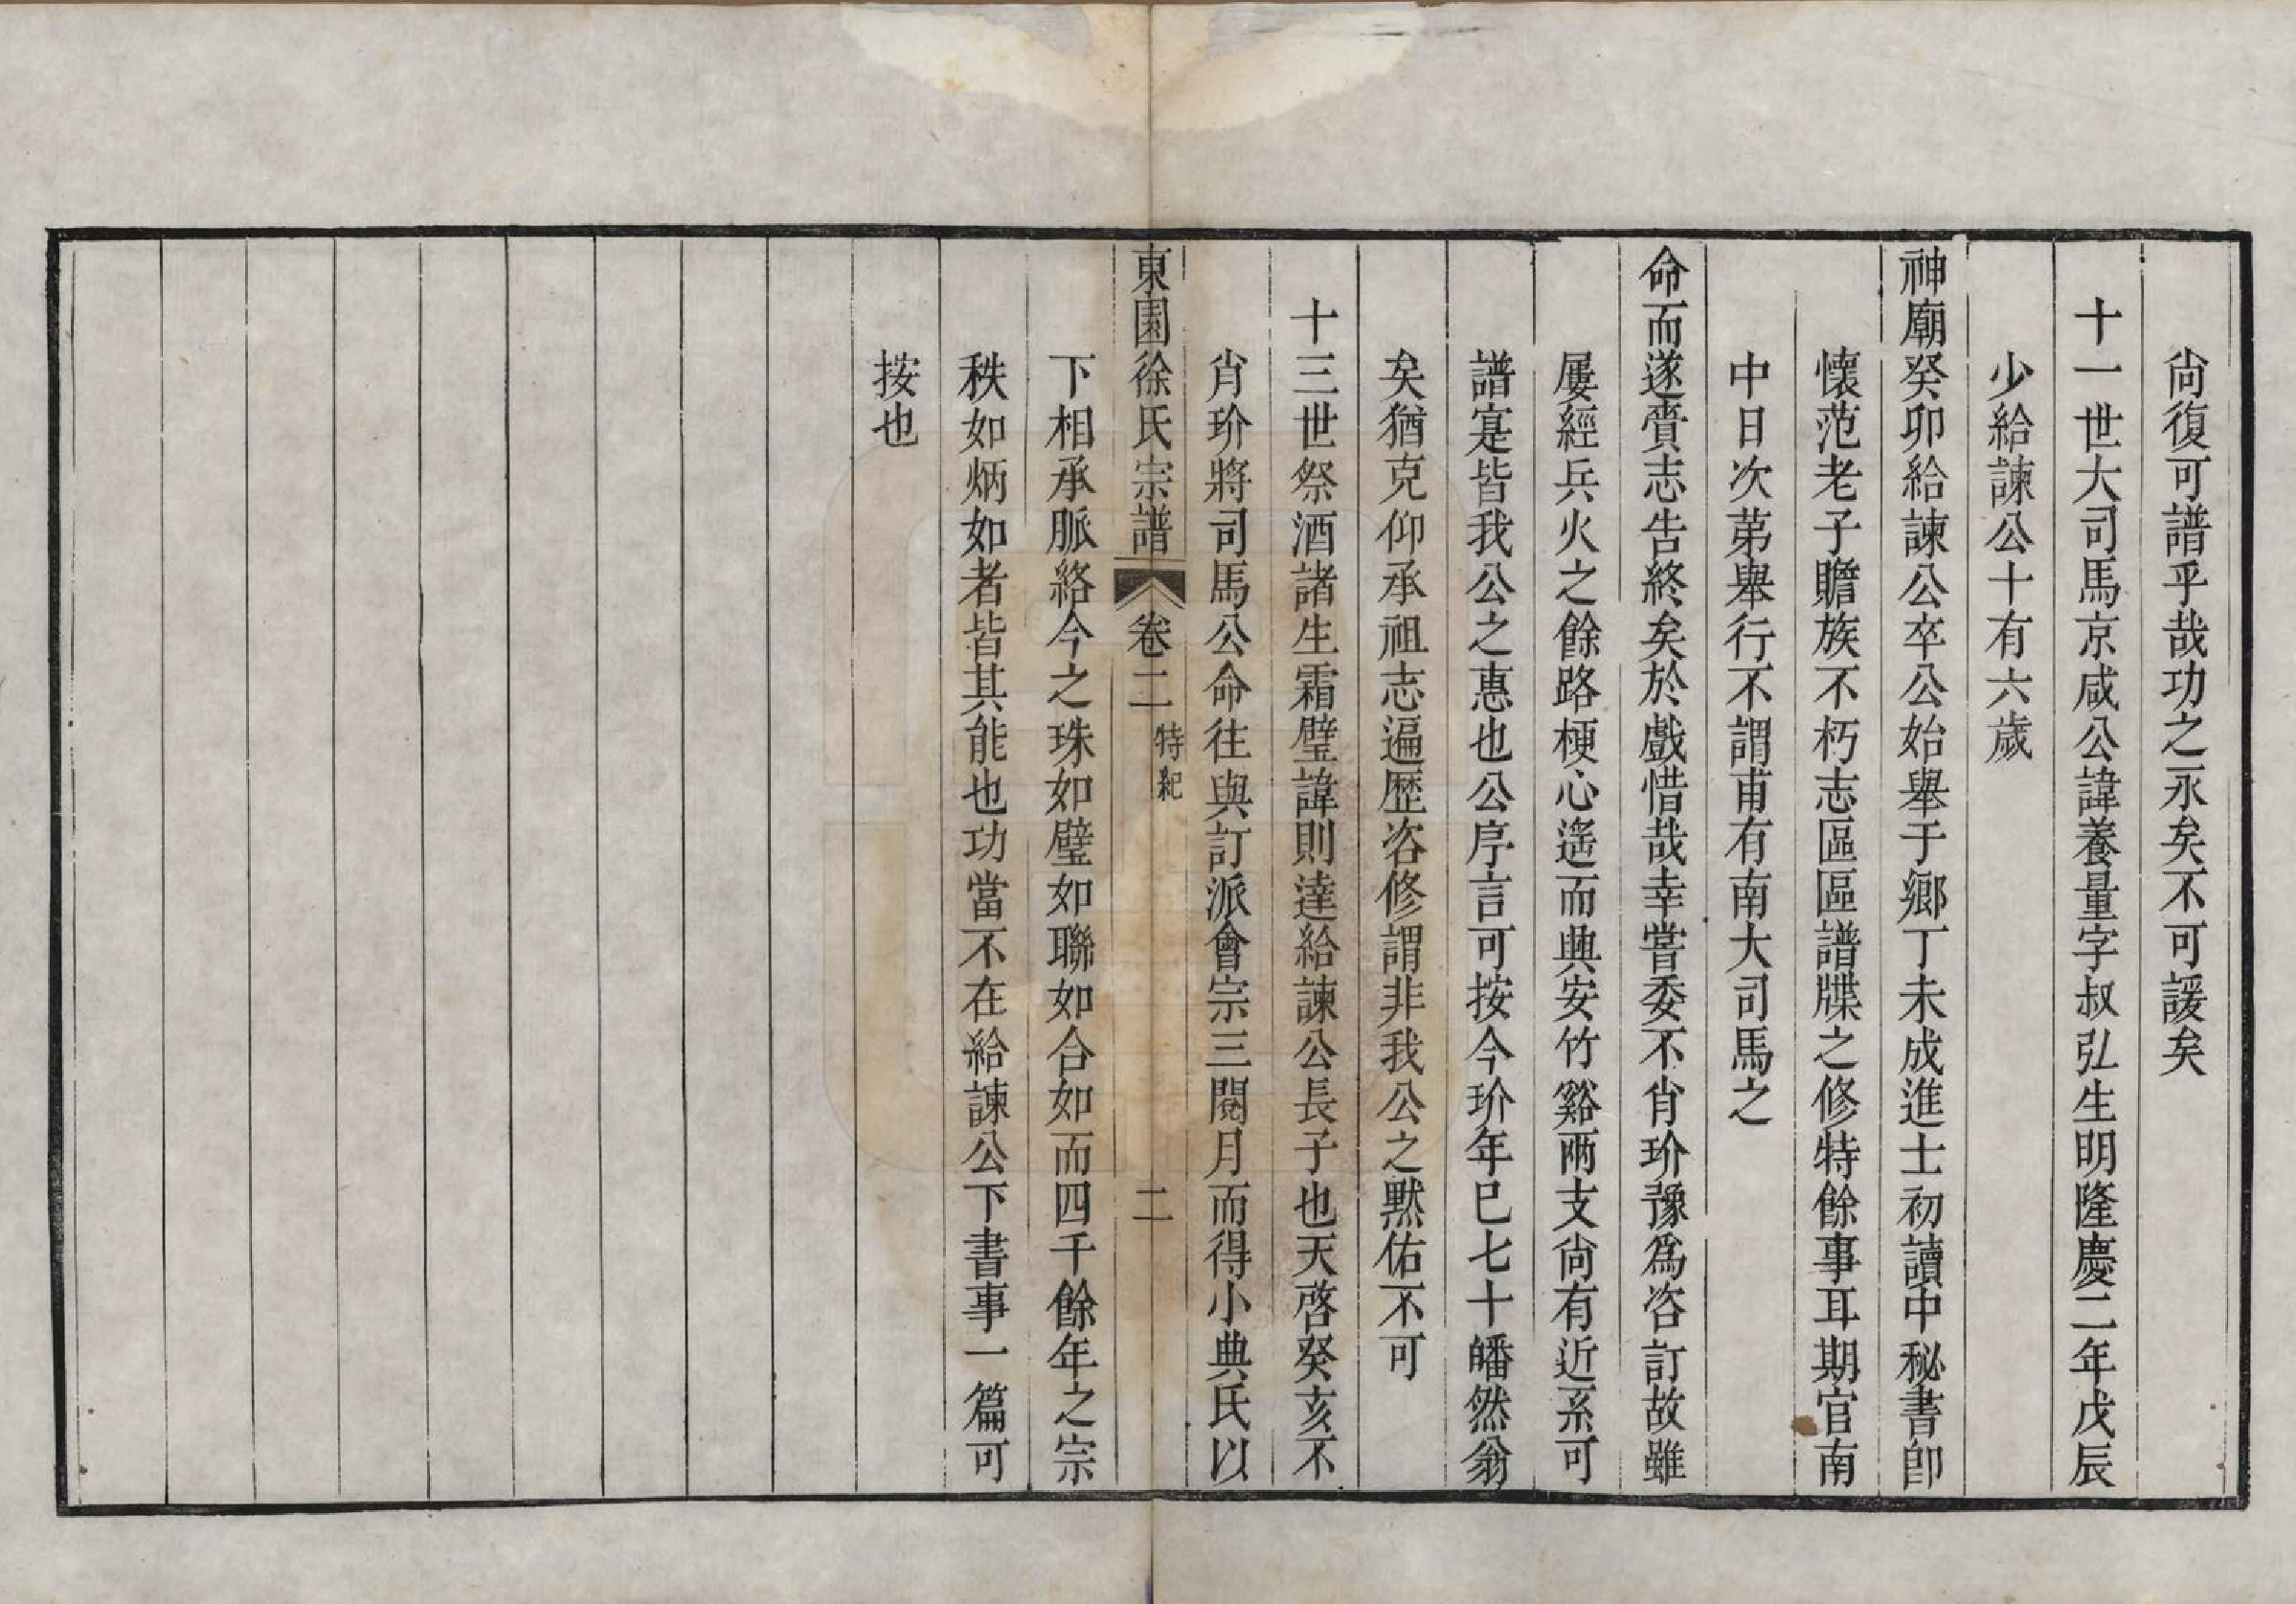 尙復可譜乎哉功之永矣不可諼矣
十一世大司馬京咸公諱養量字叔弘生明隆慶二年戊辰
少給諫公十有六歲
神廟癸卯給諫公卒公始舉于鄉丁未成進士初讀中秘書卽
懷范老子贍族不朽志區區譜牒之修特餘事耳期官南
中日次第舉行不謂甫有南大司馬之
命而遂賫志告終矣於戲惜哉幸嘗委不肖玠豫爲咨訂故雖
屢經兵火之餘路梗心遙而典安竹谿兩支尙有近系可
譜寔皆我公之惠也公序言可按今玠年已七十皤然翁
矣猶克仰承祖志遍歷咨修謂非我公之默佑不可
十三世祭酒諸生霜璧諱則達給諫公長子也天啓癸亥不
肖玠將司馬公命往與訂派會宗三閱月而得小典氏以
東園徐氏宗譜 卷二 特紀 二
下相承脈絡今之珠如璧如聯如合如而四千餘年之宗
秩如炳如者皆其能也功當不在給諫公下書事一篇可
按也